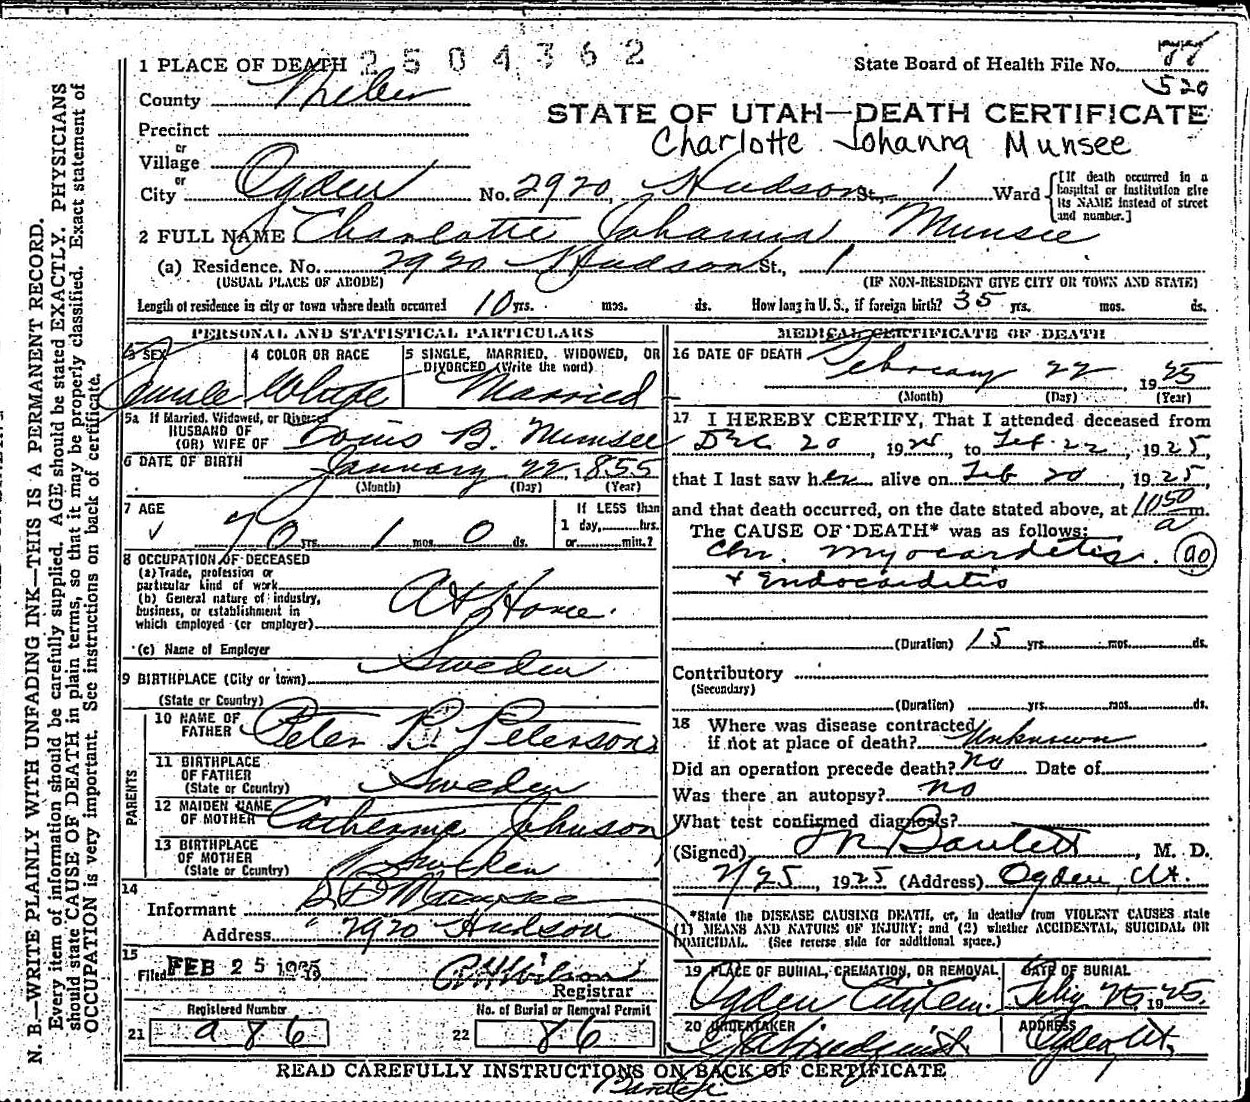 2504362
1 PLACE OF DEATH
State Board of Health File No. 77
520
County Weber
STATE OF UTAH—DEATH CERTIFICATE
Precinct
or
Charlotte Johanna Munsee
Village
or
City Ogden No. 2920, Hudson St., 1 Ward [If death occurred in a hospital or institution give its NAME instead of street and number.]
2 FULL NAME Charlotte Johanna Munsee
(a) Residence. No. 2920 Hudson St., 1
(USUAL PLACE OF ABODE) (IF NON-RESIDENT GIVE CITY OR TOWN AND STATE)
Length of residence in city or town where death occurred 10 yrs. mos. ds. How long in U.S., if foreign birth? 35 yrs. mos. ds.
PERSONAL AND STATISTICAL PARTICULARS
3 SEX 4 COLOR OR RACE 5 SINGLE, MARRIED, WIDOWED, OR DIVORCED (Write the word)
Female White Married
5a If Married, Widowed, or Divorced
HUSBAND OF
(OR) WIFE OF Louis B. Munsee
6 DATE OF BIRTH January 22, 1855
(Month) (Day) (Year)
7 AGE If LESS than
1 day, hrs.
70 yrs. 1 mos. 0 ds. or min.?
8 OCCUPATION OF DECEASED
(a) Trade, profession or
particular kind of work
(b) General nature of industry,
business, or establishment in
which employed (or employer) At Home
(c) Name of Employer
9 BIRTHPLACE (City or town) Sweden
(State or Country)
PARENTS
10 NAME OF FATHER Peter B. Peterson
11 BIRTHPLACE OF FATHER (State or Country) Sweden
12 MAIDEN NAME OF MOTHER Catherine Johnson
13 BIRTHPLACE OF MOTHER (State or Country) Sweden
14
Informant L B Munsee
Address 2920 Hudson
15
Filed FEB 25 1925 Wilson
Registrar
Registered Number No. of Burial or Removal Permit
21 a86 22 86
MEDICAL CERTIFICATE OF DEATH
16 DATE OF DEATH
February 22, 1925
(Month) (Day) (Year)
17 I HEREBY CERTIFY, That I attended deceased from
Dec 20, 192 , to Feb 22, 1925,
that I last saw her alive on Feb 20, 1925,
and that death occurred, on the date stated above, at 1050 a m.
The CAUSE OF DEATH* was as follows:
Chr. Myocarditis 90
+ Endocarditis
(Duration) 15 yrs. mos. ds.
Contributory
(Secondary)
(Duration) yrs. mos. ds.
18 Where was disease contracted
if not at place of death? Unknown
Did an operation precede death? no Date of
Was there an autopsy? no
What test confirmed diagnosis?
(Signed) Bartlett, M. D.
2/25, 1925 (Address) Ogden, Ut.
*State the DISEASE CAUSING DEATH, or, in deaths from VIOLENT CAUSES state
(1) MEANS AND NATURE OF INJURY; and (2) whether ACCIDENTAL, SUICIDAL OR
HOMICIDAL. (See reverse side for additional space.)
19 PLACE OF BURIAL, CREMATION, OR REMOVAL DATE OF BURIAL
Ogden City Cem. Feby 25, 1925
20 UNDERTAKER ADDRESS
Lindquist Ogden, Ut.
READ CAREFULLY INSTRUCTIONS ON BACK OF CERTIFICATE
N. B.—WRITE PLAINLY WITH UNFADING INK—THIS IS A PERMANENT RECORD.
Every item of information should be carefully supplied. AGE should be stated EXACTLY. PHYSICIANS
should state CAUSE OF DEATH in plain terms, so that it may be properly classified. Exact statement of
OCCUPATION is very important. See instructions on back of certificate.